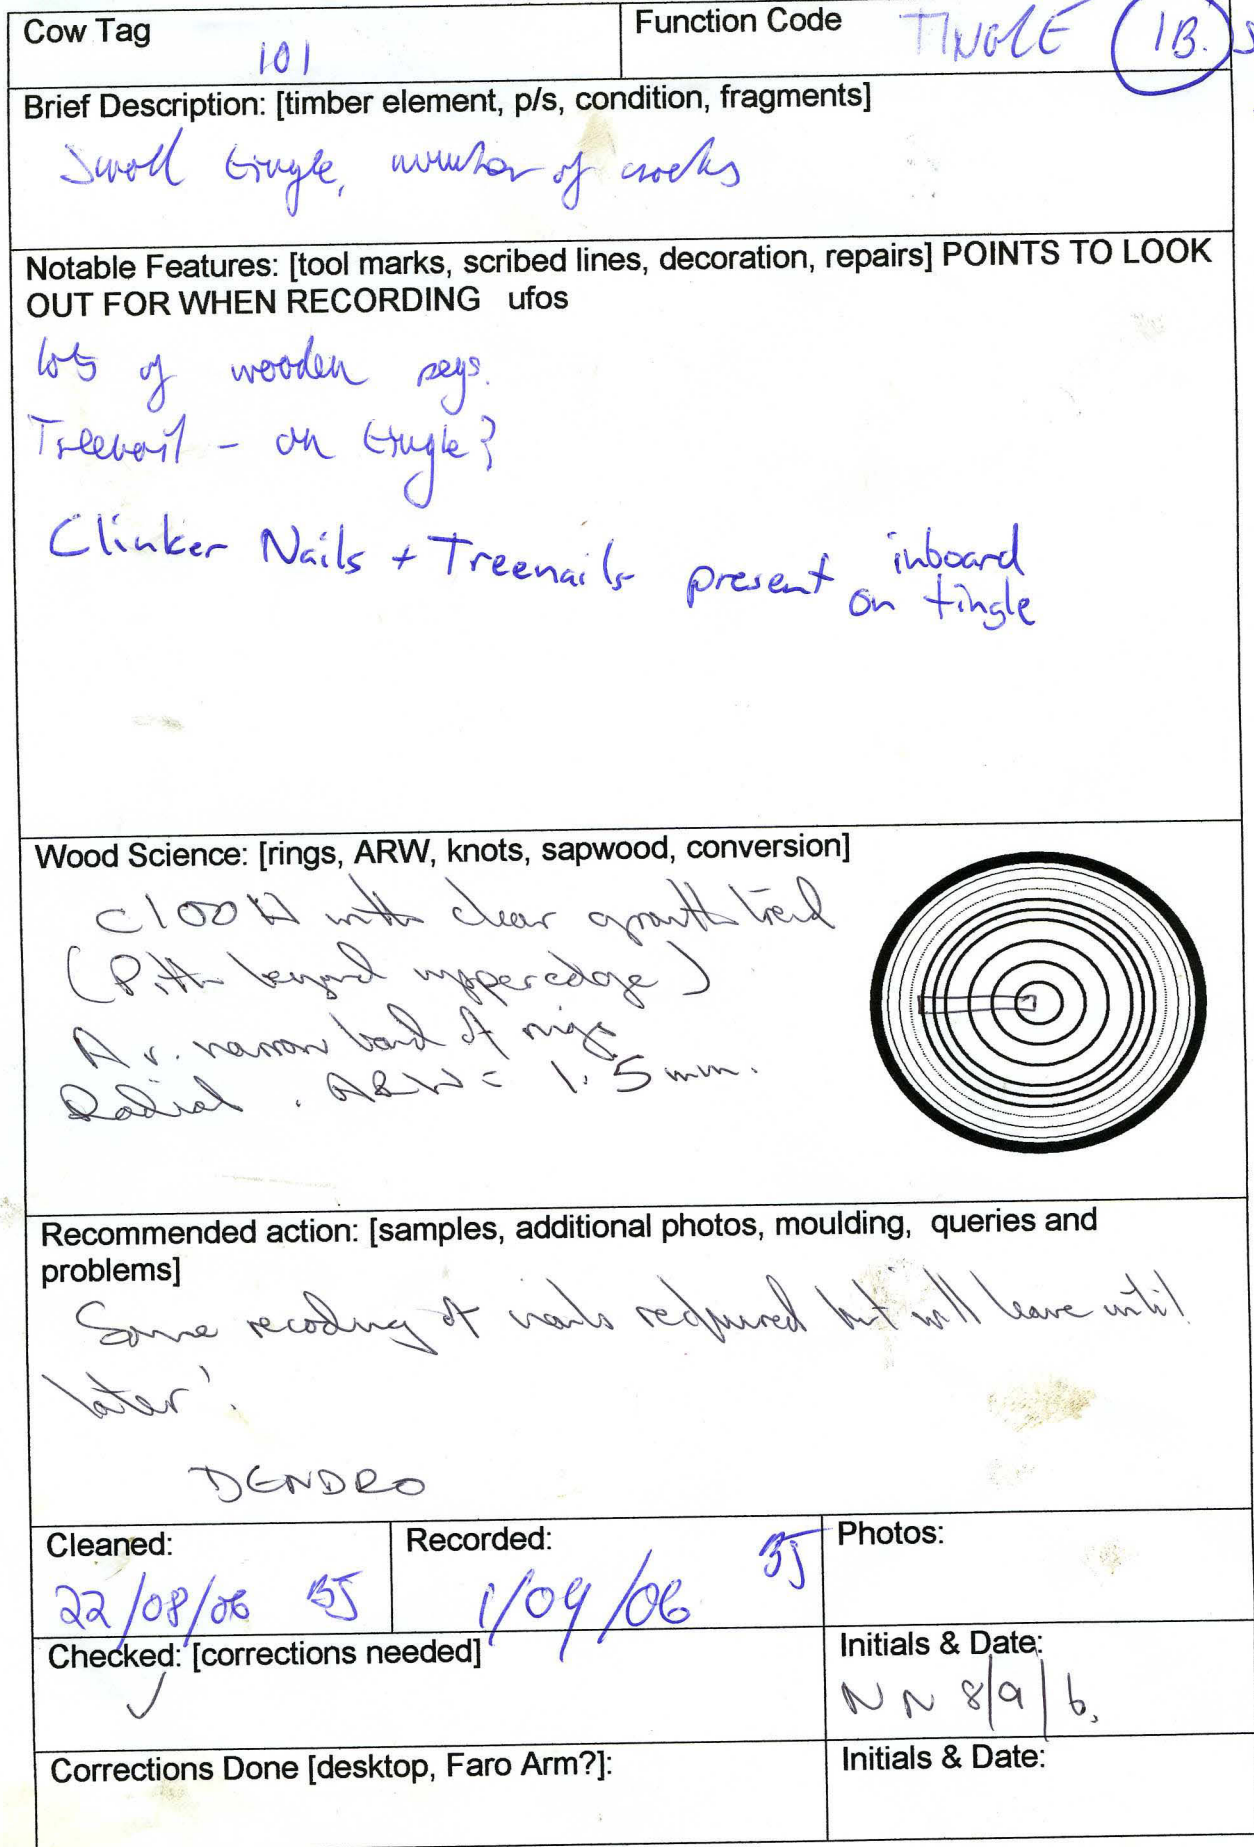 Cow Tag
101
Function Code
TINGLE 1B. S
Brief Description: [timber element, p/s, condition, fragments]
Small tingle, number of cracks
Notable Features: [tool marks, scribed lines, decoration, repairs] POINTS TO LOOK
OUT FOR WHEN RECORDING ufos
lots of wooden pegs.
Treenail - on tingle?
Clinker Nails + Treenails present inboard
on tingle
Wood Science: [rings, ARW, knots, sapwood, conversion]
with clear growth trend
(Pith beyond upper edge)
A v. narrow band of rings
Radial. ARW = 1.5 mm.
Recommended action: [samples, additional photos, moulding, queries and
problems]
Some recoding of nails required but will leave until
later'.
DENDRO
Cleaned:
22/08/06 BJ
Recorded:
1/09/06 BJ
Photos:
Checked: [corrections needed]
✓
Initials & Date:
NN 8/9/6.
Corrections Done [desktop, Faro Arm?]:
Initials & Date: